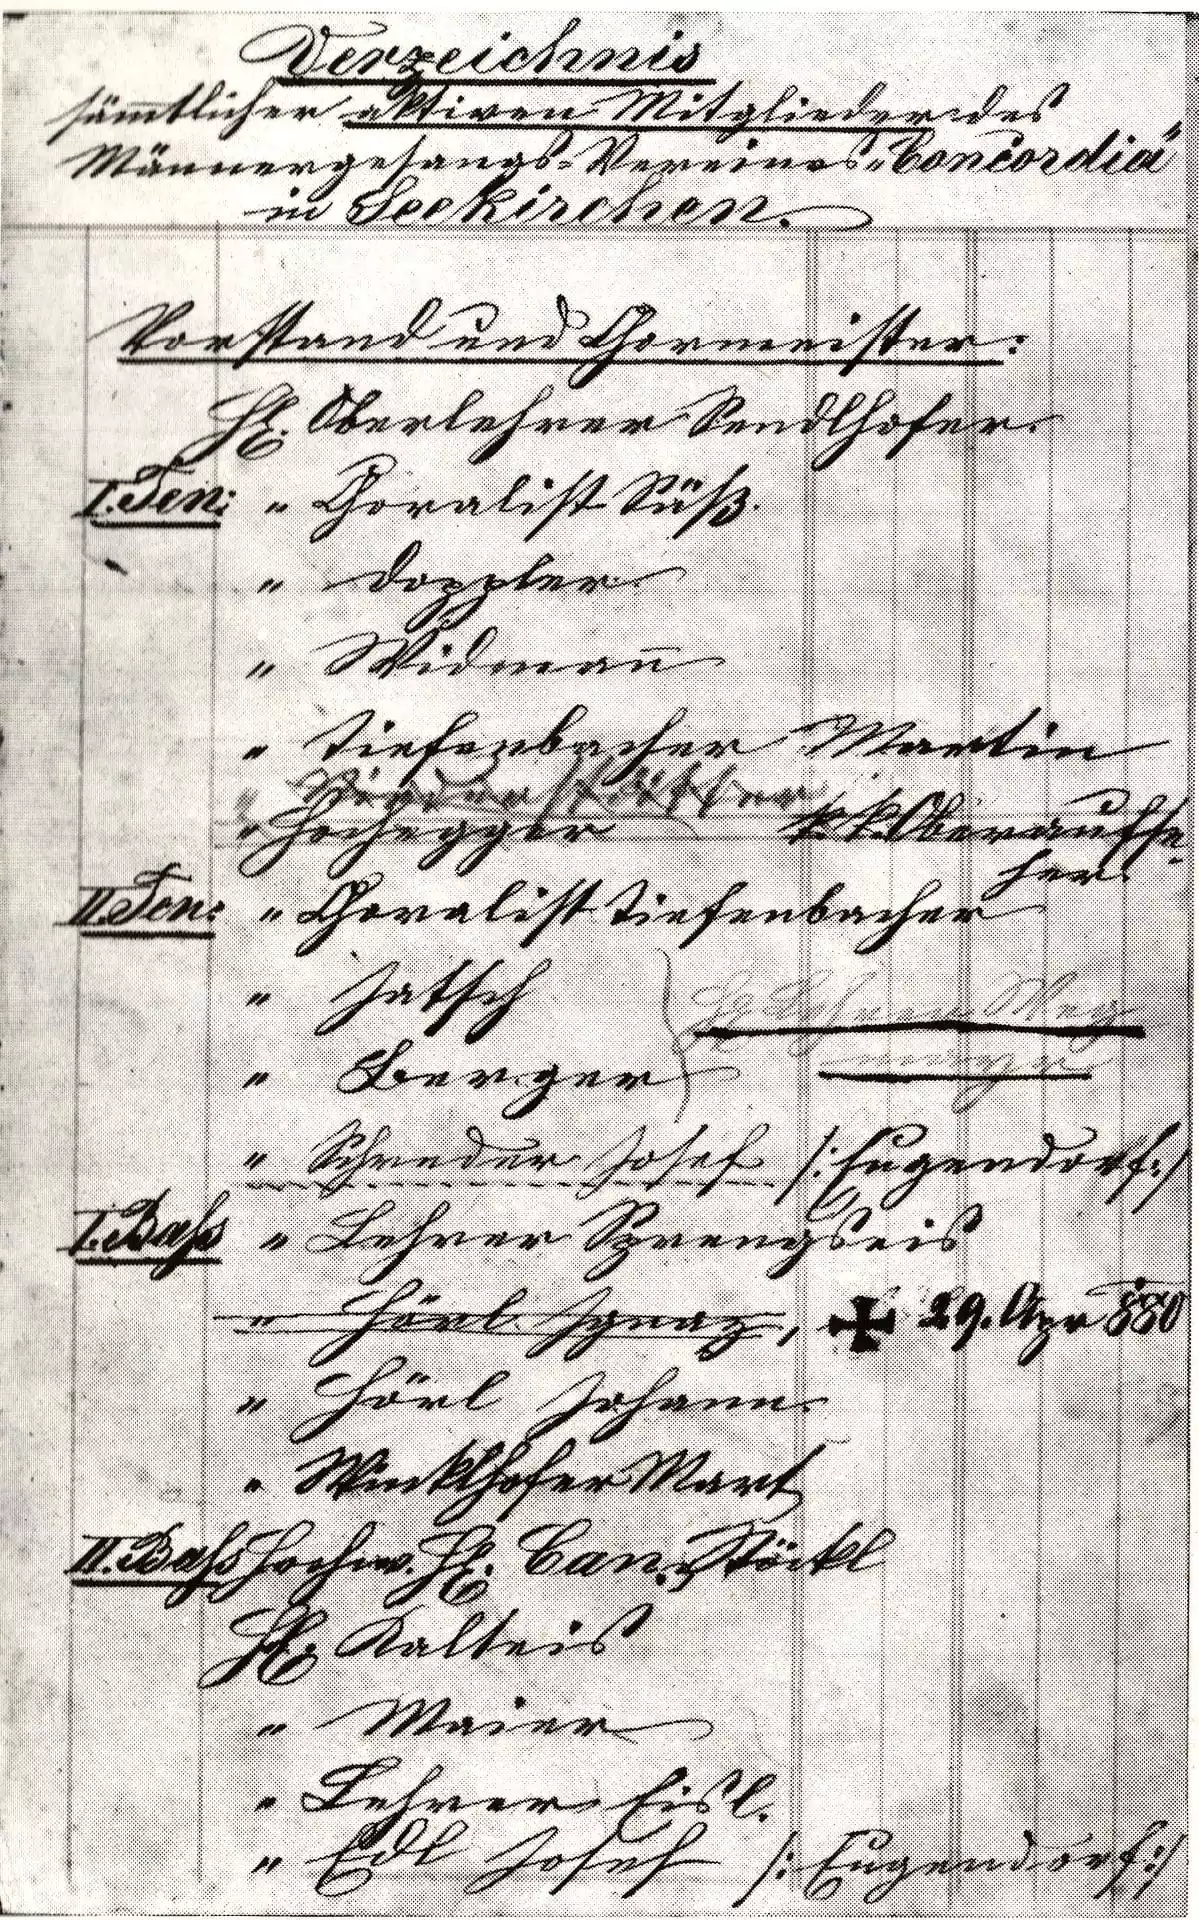 Verzeichnis
sämmtlicher aktiven Mitglieder des
Männergesangs-Vereines „Concordia“
in Seekirchen.
Vorstand und Chormeister:
H. Oberlehrer Sendlhofer.
I. Ten: " Choralist Süß.
" Doppler
" Widmann
" Tiefenbacher Martin
" Hochegger k. k. Oberaufse-
her.
II. Ten: " Choralist Tiefenbacher
" Jatsch
" Berger
" Schreder Josef /: Eugendorf :/
I. Baß " Lehrer Sprengseis
" Hörl Ignaz, ✠ 29. Apr 880
" Hörl Johann.
" Winklhofer Mart
II. Baß Hochw. H. Can. Stöckl
H. Kalteis
" Maier
" Lehrer Eisl.
" Edl Josef /: Eugendorf :/